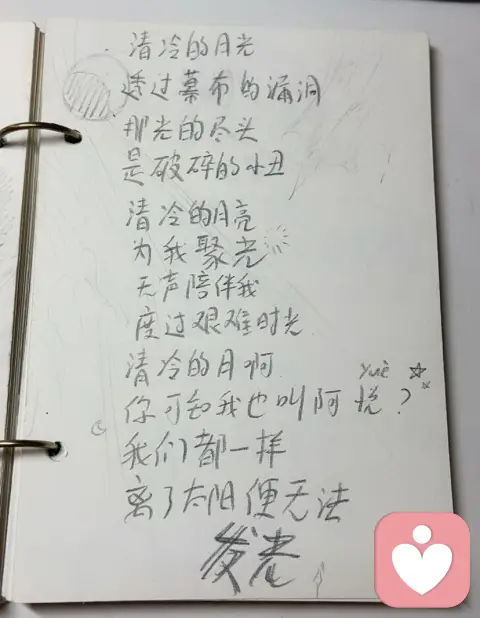 清冷的月光
透过幕布的漏洞
那光的尽头
是破碎的小丑
清冷的月亮
为我聚光
无声陪伴我
度过艰难时光
清冷的月啊
yuè
你可知我也叫阿悦？
我们都一样
离了太阳便无法
发光